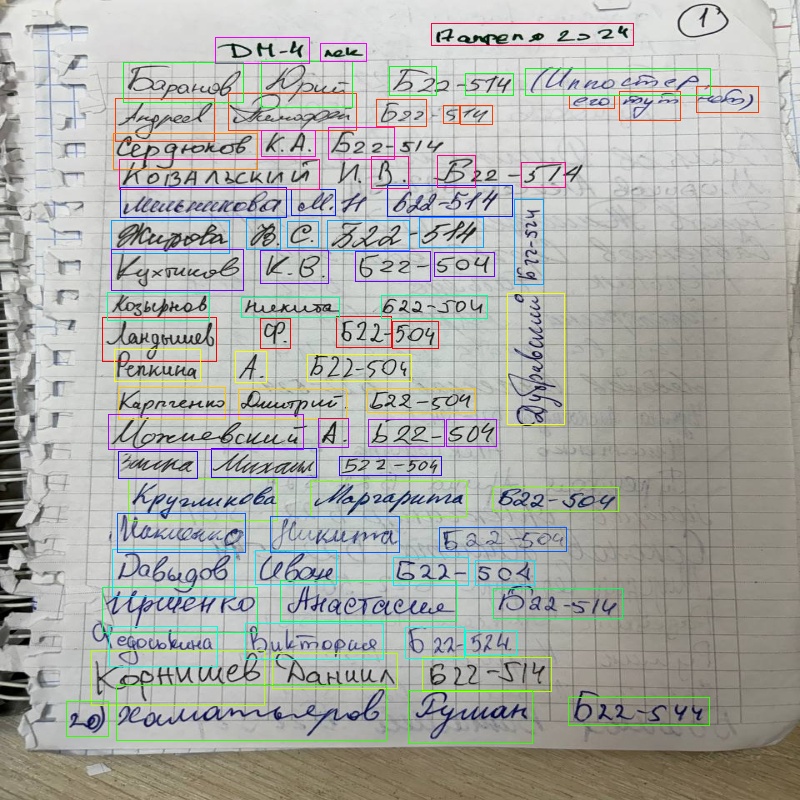 1
ДМ-4 лек 17 апреля 2024
Баранов Юрий Б22-514 (Импостер,
его тут нет)
Андреев Тимофей Б22-514
Сердюков К.А. Б22-514
Ковальский И.В. Б22-514
Мельникова М.Н Б22-514
Жирова В.С. Б22-514
Кухтиков К.В. Б22-504
Козырнов Никита Б22-504
Ландышев Ф. Б22-504
Репкина А. Б22-504
Карпченко Дмитрий. Б22-504
Можиевский А. Б22-504
Михаил Б22-504
Кругликова Маргарита Б22-504
Никита Б22-504
Давыдов Иван Б22-504
Ирщенко Анастасия Б22-514
Федоськина Виктория Б22-524
Корнишев Даниил Б22-514
20) Хаматьяров Руслан Б22-544
Дубревский Б22-524